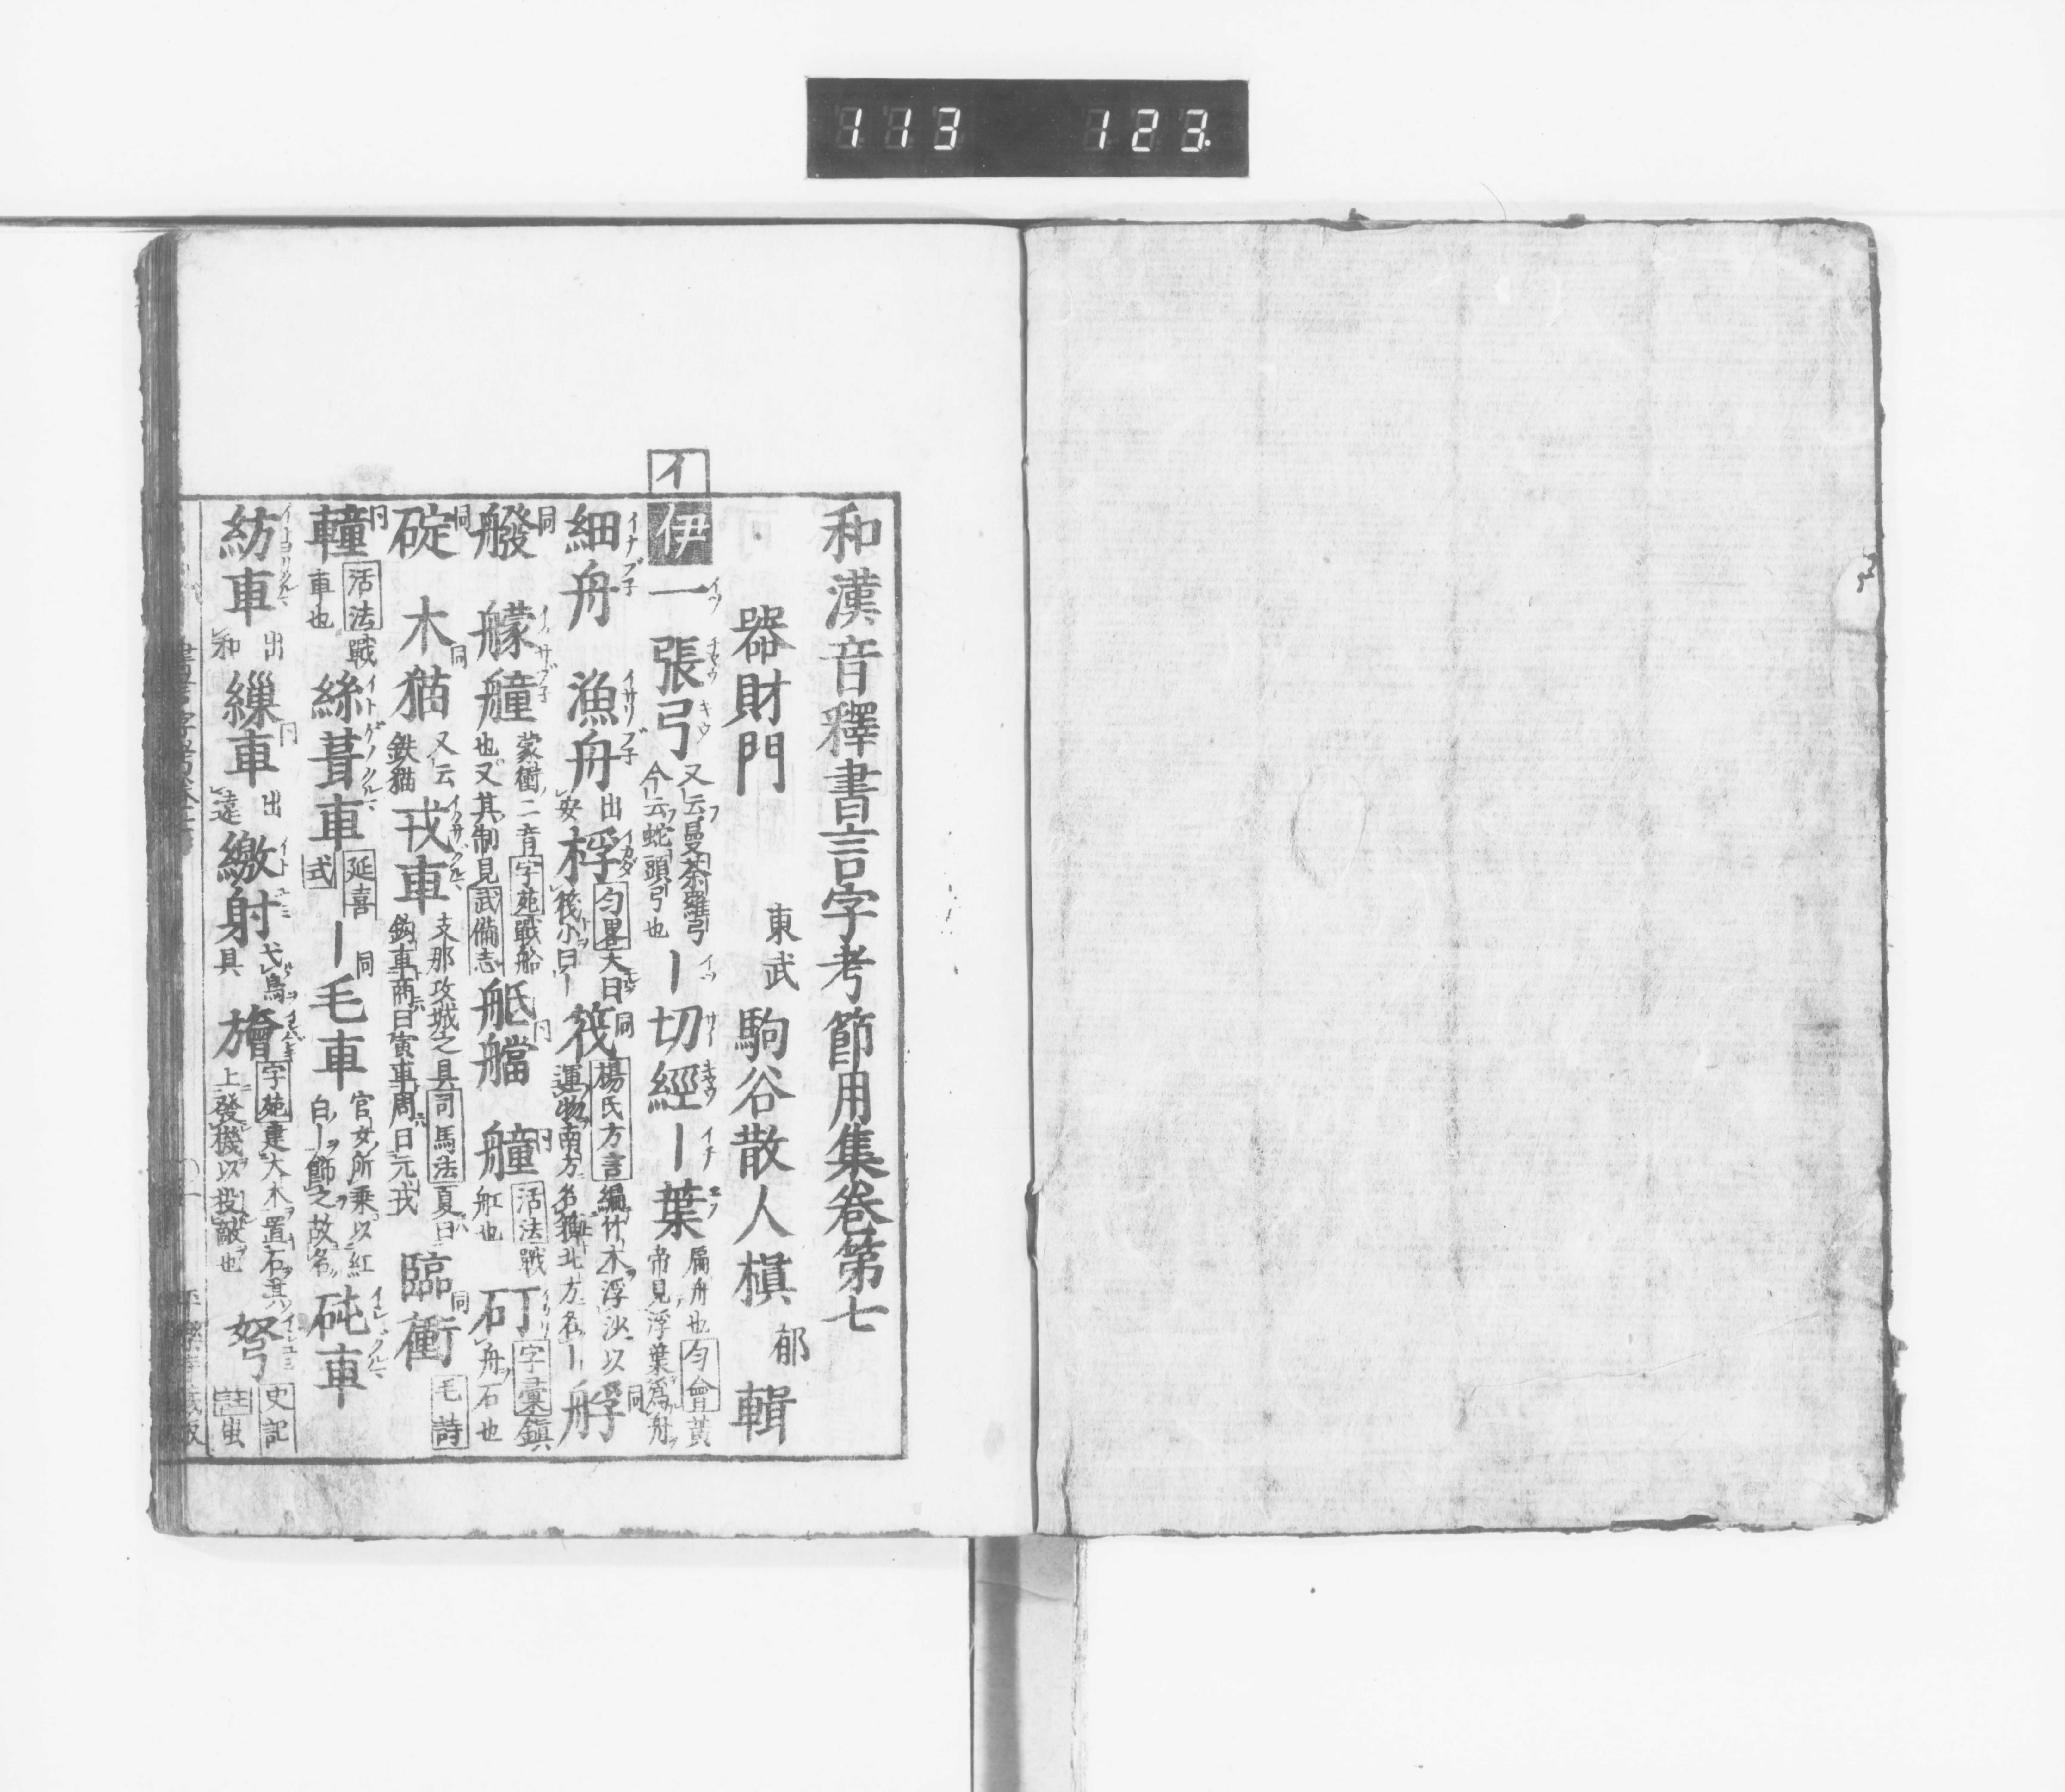 113 123.
和漢音釋書言字考節用集卷第七
器財門 東武 駒谷散人槙 郁 輯
イ
伊 一張弓 又云曼荼羅弓 今云蛇頭弓也 ー切經 ー葉 扁舟也 匀會 黃帝見浮葉爲舟
細舟 漁舟 出安 桴 匀畧 大曰筏小曰ー 筏 同 楊氏方言 編竹木浮沙以運物南方名 北方名ー 艀 同
艬 同 艨艟 蒙衝二音 字苑 戰船也又其制見 武備志 艟 活法 戰舡也 矴 字彙 鎮舟石也
碇 同 木猫 同 又云鉄猫 戎車 支那攻城之具 司馬法 夏曰鈎車商曰寅車周曰元戎 臨衝 同 毛詩
轒 活法 戰車也 絲葺車 延喜式 ー毛車 同 官女所乘以紅白ー飾之故名 砘車
紡車 出和 繅車 出遠 繳射 弋鳥具 旝 字苑 建大木置石其上發機以投敵也 弩 史記註